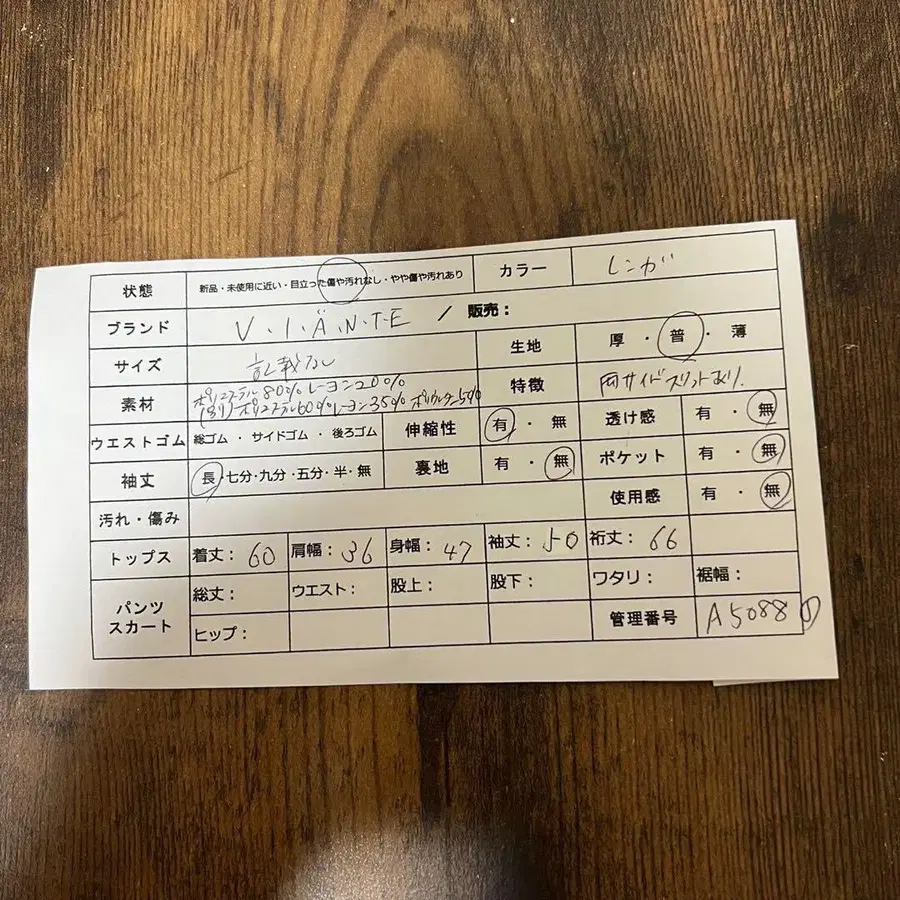 状態 新品・未使用に近い・目立った傷や汚れなし・やや傷や汚れあり カラー レンガ
ブランド V・I・Ä・N・T・E / 販売：
サイズ 記載なし 生地 厚・普・薄
素材 ポリエステル80%レーヨン20% 特徴 両サイドスリットあり.
(別リ)ポリエステル60%レーヨン35%ポリウレタン5%
ウエストゴム 総ゴム・サイドゴム・後ろゴム 伸縮性 有・無 透け感 有・無
袖丈 長・七分・九分・五分・半・無 裏地 有・無 ポケット 有・無
汚れ・傷み 使用感 有・無
トップス 着丈：60 肩幅：36 身幅：47 袖丈：50 裄丈：66
パンツ スカート 総丈： ウエスト： 股上： 股下： ワタリ： 裾幅：
ヒップ： 管理番号 A5088①